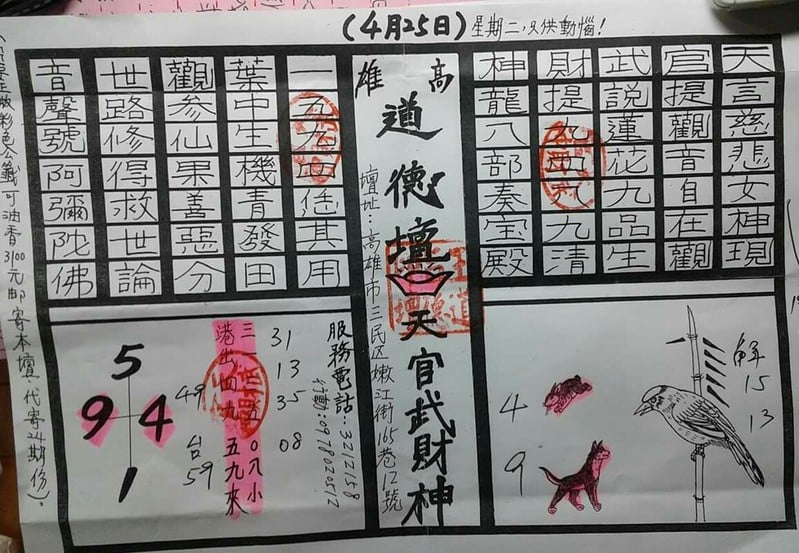 (4月25日)星期二,又供動惱!
天言慈悲女神現
官提觀音自在觀
武說蓮花九品生
財提九清
神龍八部奏宝殿
高雄
道德壇 天官武財神
壇址:高雄市三民区嫩江街165巷12號
一五九四恁其用
葉中生機青發田
觀參仙果善惡分
世路修得救世論
音聲號阿彌陀佛
解
15
13
4
9
服務電話:3212158
行動:0978020512
31
13
35
08
三 五〇八小
港出四九 五九來
49
台59
5
9 4
1
正版彩色公籤可油香3100元邮寄本壇,代寄24期份)。